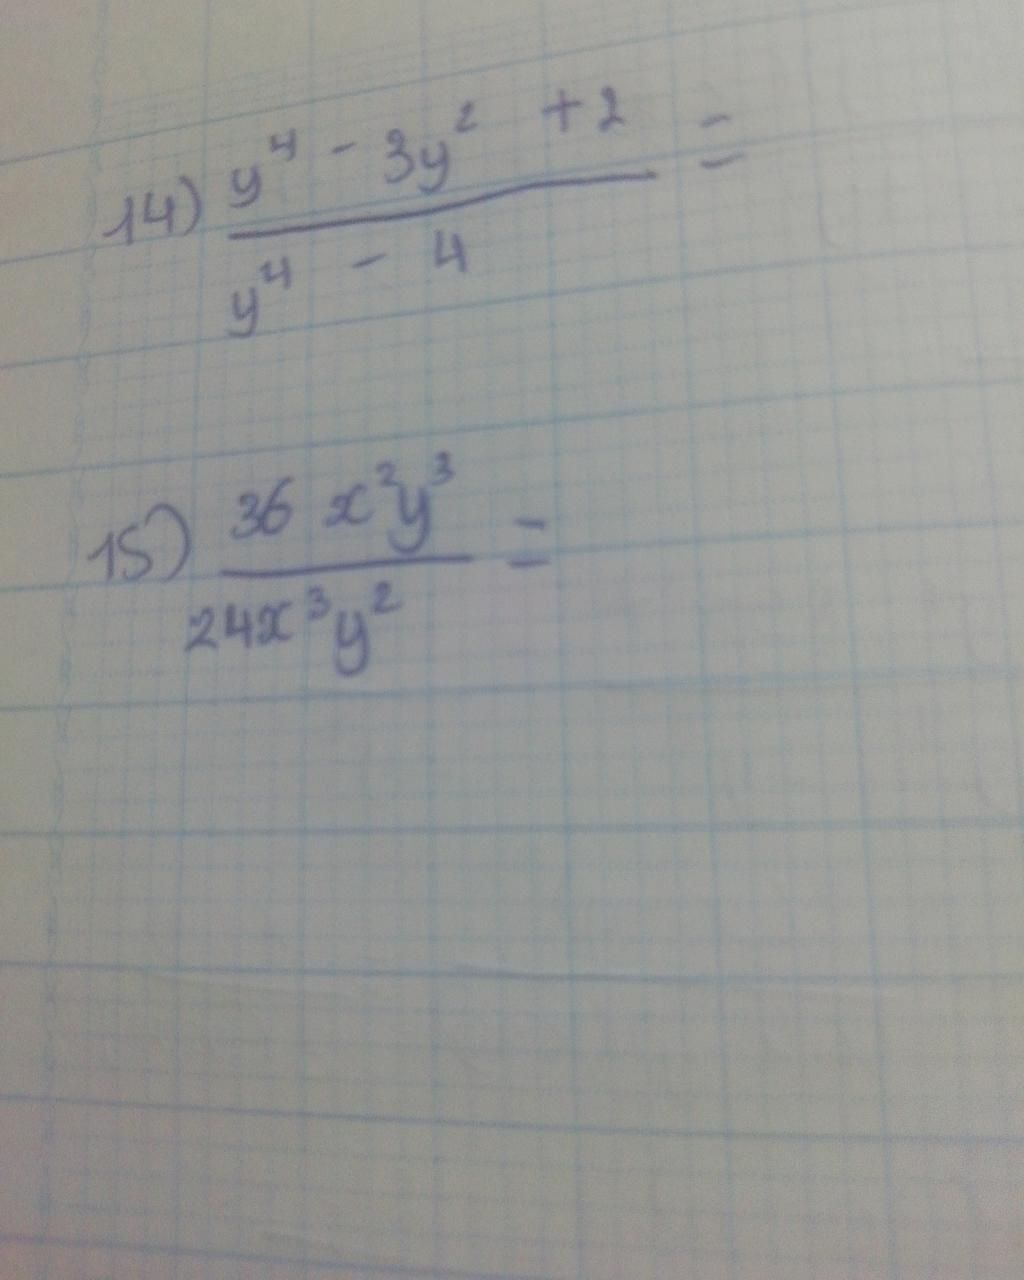 14) y⁴ - 3y² + 2 =
y⁴ - 4
15) 36 x²y³ =
24x³y²